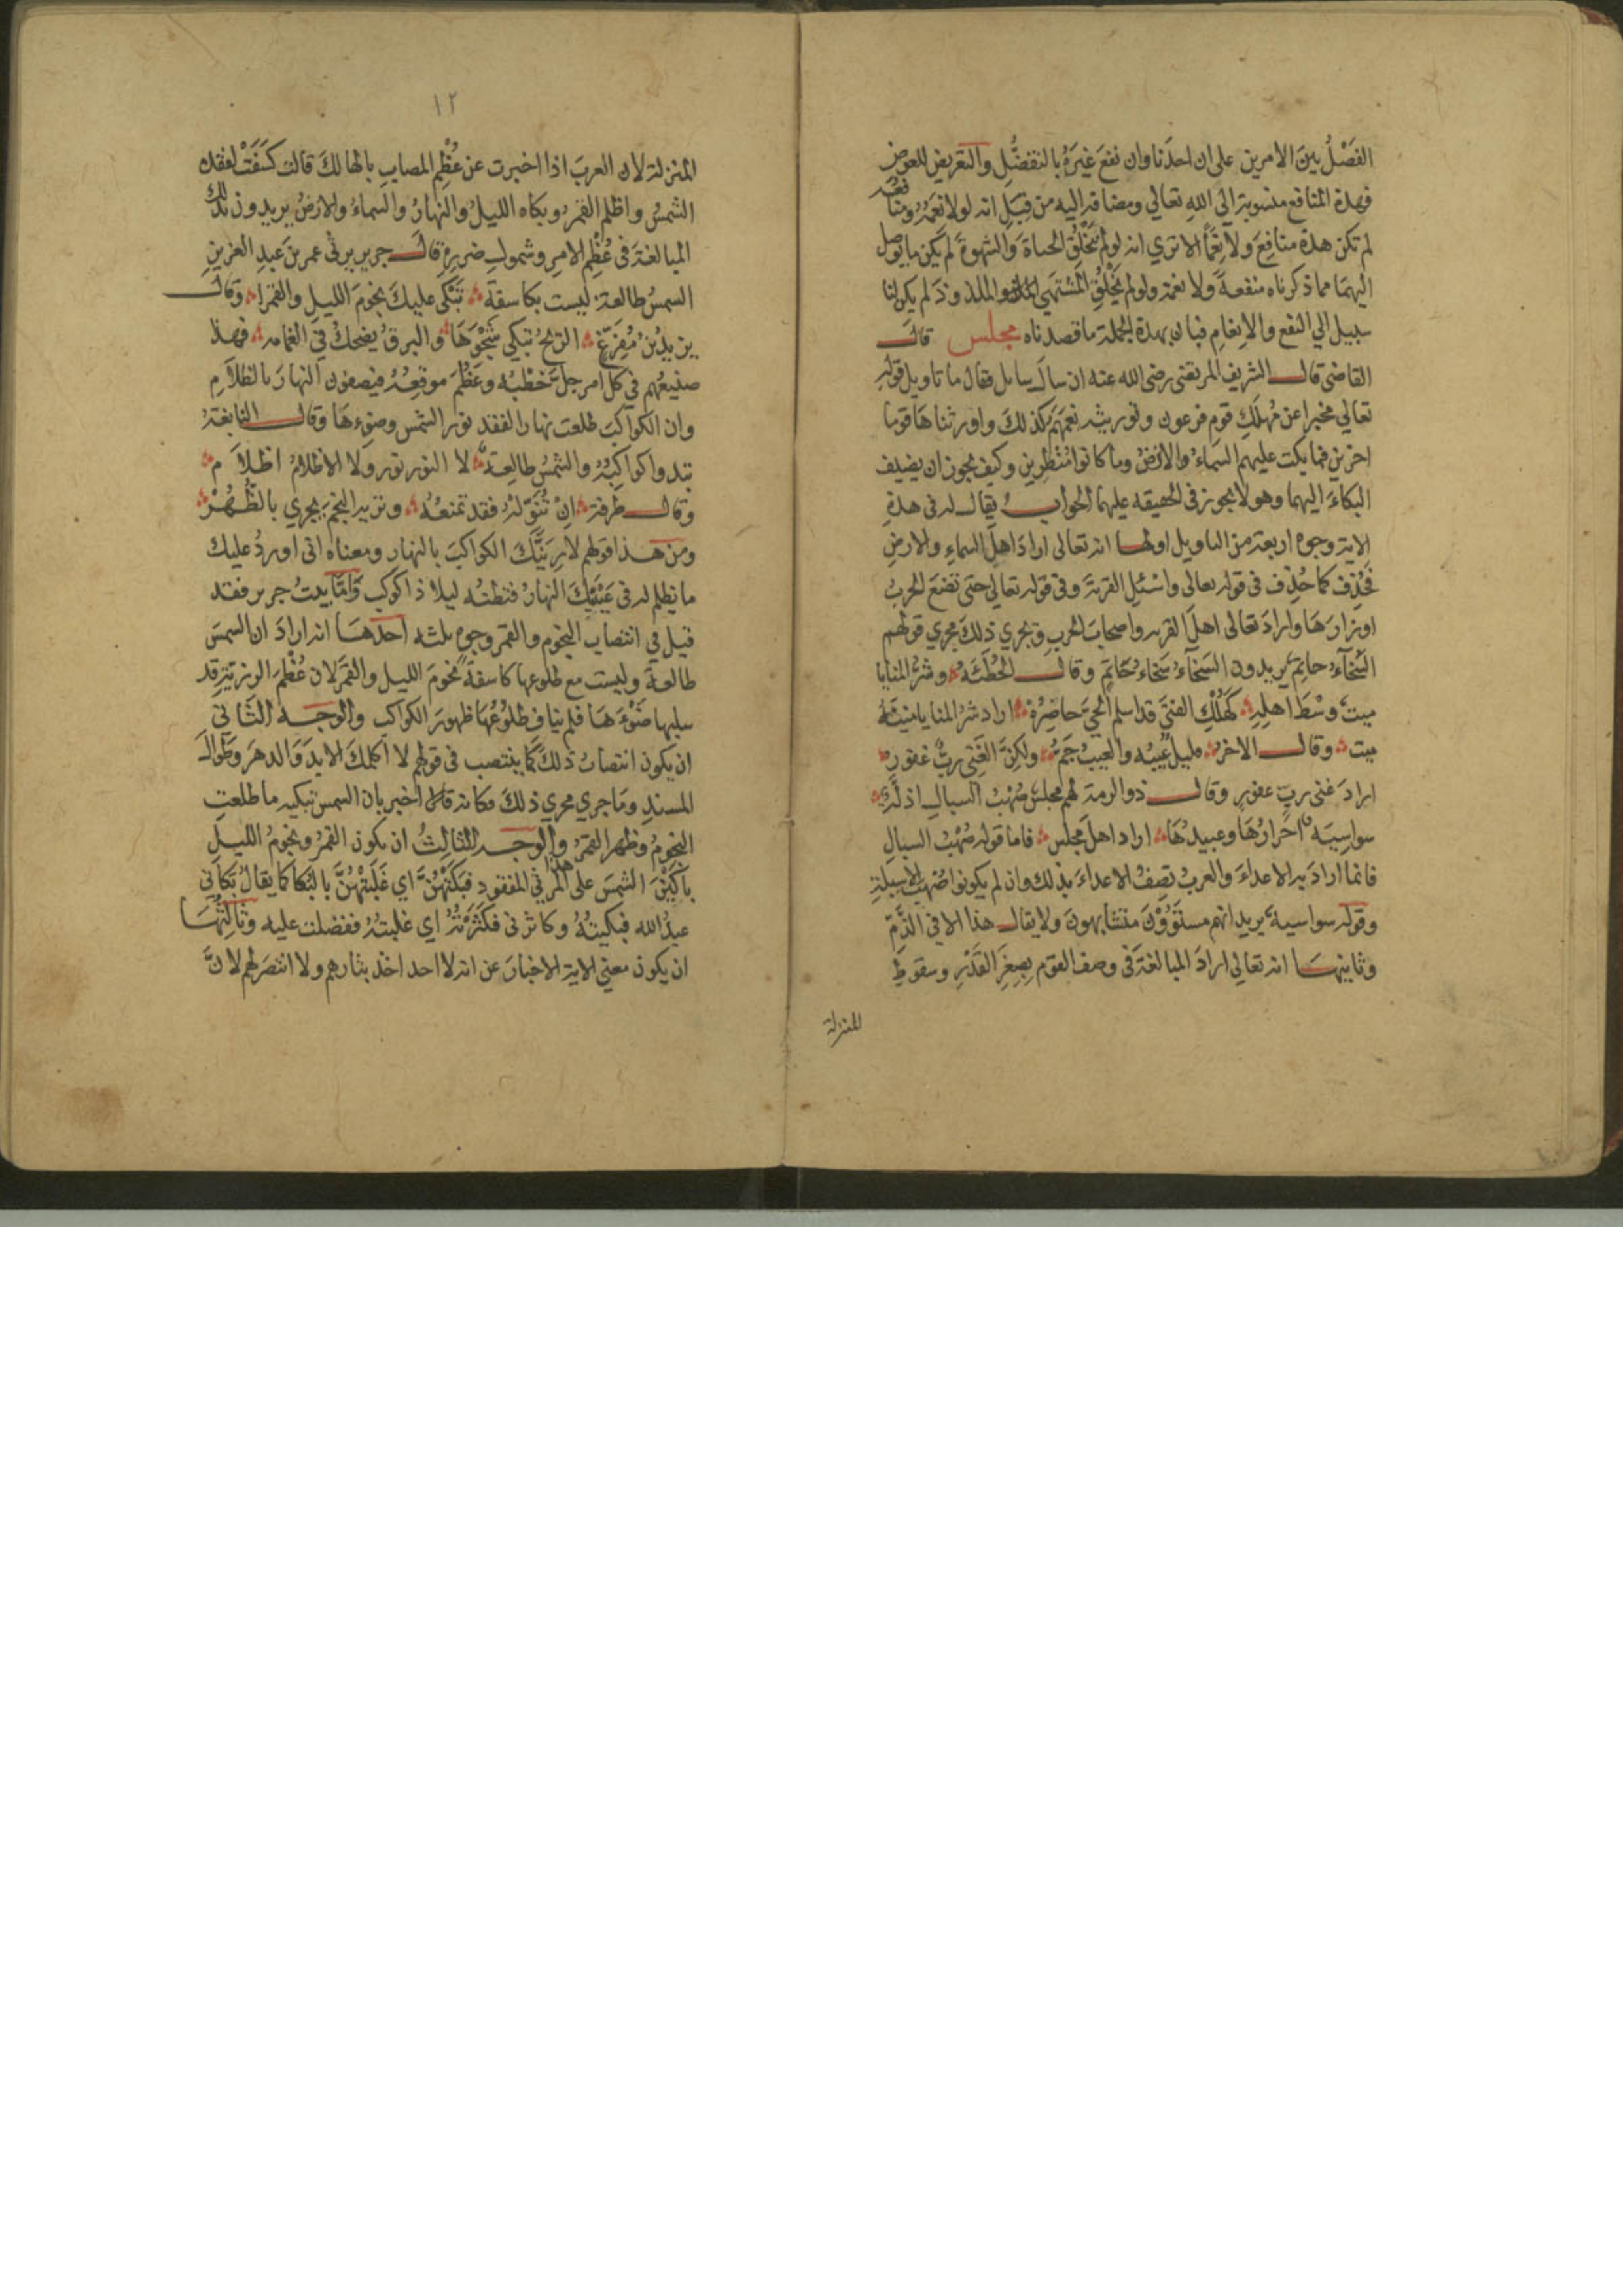 الفَصْلُ بينَ الامرين على ان احدَنا وان نفعَ غيرَهُ بالتفضُّلِ والتعريض للعوضِ
فهذة المنافع منسوبة الى اللهِ تعالي ومضافة اليه من قِبَلِ انه لولا نِعَمُهُ ومنافعه
لم تكن هذة منافعَ ولا نِعَمًا الا تري انه لو لم يَخْلُقِ الحياةَ والشهوةَ لم يكن ما يوصل
اليهما مما ذكرناه منفعةً ولا نعمة ولو لم يَخْلُقِ المُشتهَي والملذوذَ لم يكن لنا
سبيل الي النفع والانعامِ فبان بهذة الجملة ما قصدناه مجلس قالَ
القاضي قال الشريف المرتضى رضى الله عنه ان سالَ سايل فقال ما تاويل قولهِ
تعالي مخبرا عن مُهلَكِ قومِ فرعون وتوريثه نِعَمَهُم كذلكَ واورثناهَا قوما
اخرين فما بكت عليهم السماءُ والارضُ وما كانوا مُنْظَرين وكيف يجوز ان يضيف
البكاءَ اليهما وهو لا يجوز فى الحقيقه عليهما الجوابُ يقال له فى هذةِ
الاية وجوه اربعة من التاويل اولها انه تعالى ارادَ اهلَ السماءِ والارضِ
فحُذِف كما حُذِف فى قوله تعالى واسْئلِ القريةَ وفى قوله تعالي حتى تضعَ الحربُ
اوزارَهَا وارادَ تعالى اهلَ القريه واصحابَ الحربِ ويجري ذلكَ مجري قولهم
السَّخآءُ حاتِمٌ يريدون السَّخآءُ سَخاءُ حَاتِمٍ وقال الحُطَيْئَهُ وشرُّ المنايا
ميتٌ وسْطَ اهلِهِ كَهُلْكِ الفتيَ قد اسلم الحيَّ حاضِرُهُ اراد شرُّ المنايا مَنِيَّةُ
ميت وقال الاخر قليلٌ عَيبُه والعيبُ جَمٌّ ولكنَّ الغِنَى ربٌّ غفورٌ
ارادَ غنى ربٍّ غفورٍ وقال ذو الرمة لهم مجلسٌ صُهْبُ السبالِ اذلَّةٌ
سواسِيَة احْرارُهَا وعبيدُهَا اراد اهلَ مجلس فاما قوله صُهْبُ السبالِ
فانما ارادَ به الاعداءَ والعربُ تصِفُ الاعداءَ بذلك وان لم يكونوا صُهْبَ الاسبلةِ
وقوله سواسيةٌ يريد انهم مستَوُوْنَ متشابهونَ ولا يقال هذا الا في الذَّمِّ
وثانيهـا انه تعالي ارادَ المبالغةَ فى وصف القوم بِصِغَرِ القَدْرِ وسقوطِ
المنزلة
١٢
المنزلة لان العربَ اذا اخبرت عن عُظْمِ المصابِ بالهالكَ قالت كَسَفَتْ لفقدِه
الشمسُ واظلم القمرُ وبكاه الليلُ والنهارُ والسماءُ والارضُ يريدون بذلك
المبالغةَ فى عُظْمِ الامرِ وشمولِ ضررِهِ قال جرير يرثى عمر بنَ عبدِ العزيزِ
الشمسُ طالعة ليست بكاسفة تَبْكى عليكَ نجومَ الليلِ والقمرا وقال
يزيدُ بنُ مُفَرِّغٍ الريحُ تبكي شَجْوَهَا والبرقُ يضحكُ في الغمامه فهذا
صنيعُهم في كل امر جلَّ خطْبُه وعَظُمَ موقعُهُ فيصفون النهارَ بالظلامِ
وان الكواكبَ طلعت نهارا لفقد نورِ الشمس وضوءِهَا وقال النابغةُ
تبدوا كواكبُهُ والشمسُ طالِعةٌ لا النور نور ولا الاظلامُ اظلاَمُ
وقال طرفة اِنْ تُنَوِّلْهُ فقد تمنعُهُ وتُريه النجمَ يجري بالظُّهُرْ
ومن هذا قولهم لارِيَنَّكَ الكواكبَ بالنهارِ ومعناه انى اوردُ عليك
ما يظلم له فى عَيْنَيْكَ النهارُ فتظنُه ليلا ذا كوكبٍ وَامَّا بيتُ جرير فقد
قيل في انتصابِ النجومِ والقمر وجوه ثلثه احدُهَـا انه ارادَ ان الشمسَ
طالعةٌ وليست مع طلوعها كاسفةً نجومَ الليل والقمرَ لان عُظْمَ الرزية قد
سلبها ضَوْءَهَا فلم يناف طلوعُها ظهورَ الكواكب والوجه الثانى
ان يكون انتصابُ ذلكَ كما ينتصب فى قولهم لا اكلمكَ الابدَ وَالدهرَ وطَوَالَ
المسندِ وما جري مجري ذلكَ فكانه قال اخبر بان الشمس تبكيه ما طلعتِ
النجومُ وظهر القمرُ والوجه الثالثُ ان يكون القمرُ ونجومُ الليلِ
باكَيْنَ الشمسَ على هذا المرثي المفقود فبكتْهُنَّ اي غَلَبَتْهُنَّ بالبُكا كما يقالُ باكاني
عبدُ الله فبكيتُهُ وكاثرنى فكثَرْتُهُ اي غلبتُهُ ففضلت عليه وثالثُهَـا
ان يكون معنى الاية الاخبارَ عن انه لا احد اخذ بثارهم ولا انتصَر لهم لانَّ